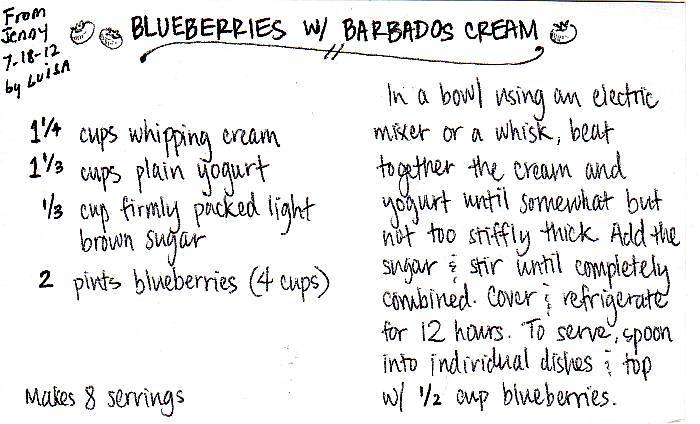 From
Jenny
7-18-12
by LUISA
BLUEBERRIES W/ BARBADOS CREAM
1 1/4 cups whipping cream
1 1/3 cups plain yogurt
1/3 cup firmly packed light
brown sugar
2 pints blueberries (4 cups)
Makes 8 servings
In a bowl using an electric
mixer or a whisk, beat
together the cream and
yogurt until somewhat but
not too stiffly thick. Add the
sugar & stir until completely
combined. Cover & refrigerate
for 12 hours. To serve, spoon
into individual dishes & top
w/ 1/2 cup blueberries.